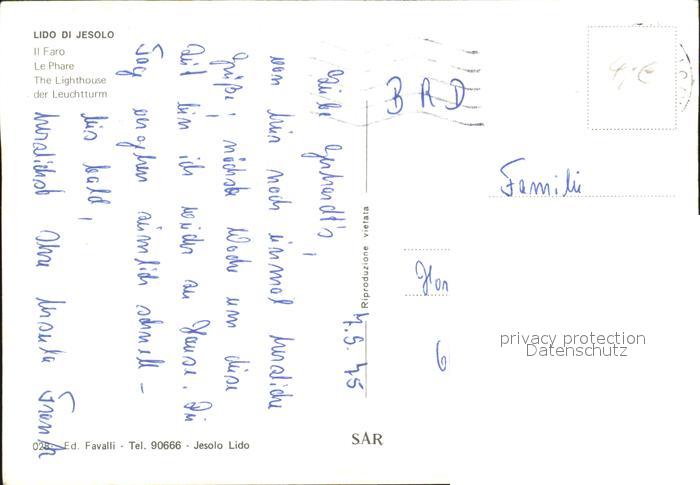 LIDO DI JESOLO
Il Faro
Le Phare
The Lighthouse
der Leuchtturm
4,-€
BRD
7.9.75
Liebe Gerhardt's,
von hier noch einmal herzliche
Grüße; nächste Woche um diese
Zeit bin ich wieder zu Hause. Die
Tage vergehen ziemlich schnell -
bis bald,
herzlichst Ihre Ursula Frank
Familie
Hor
6
Riproduzione vietata
privacy protection
Datenschutz
028 Ed. Favalli - Tel. 90666 - Jesolo Lido
SAR